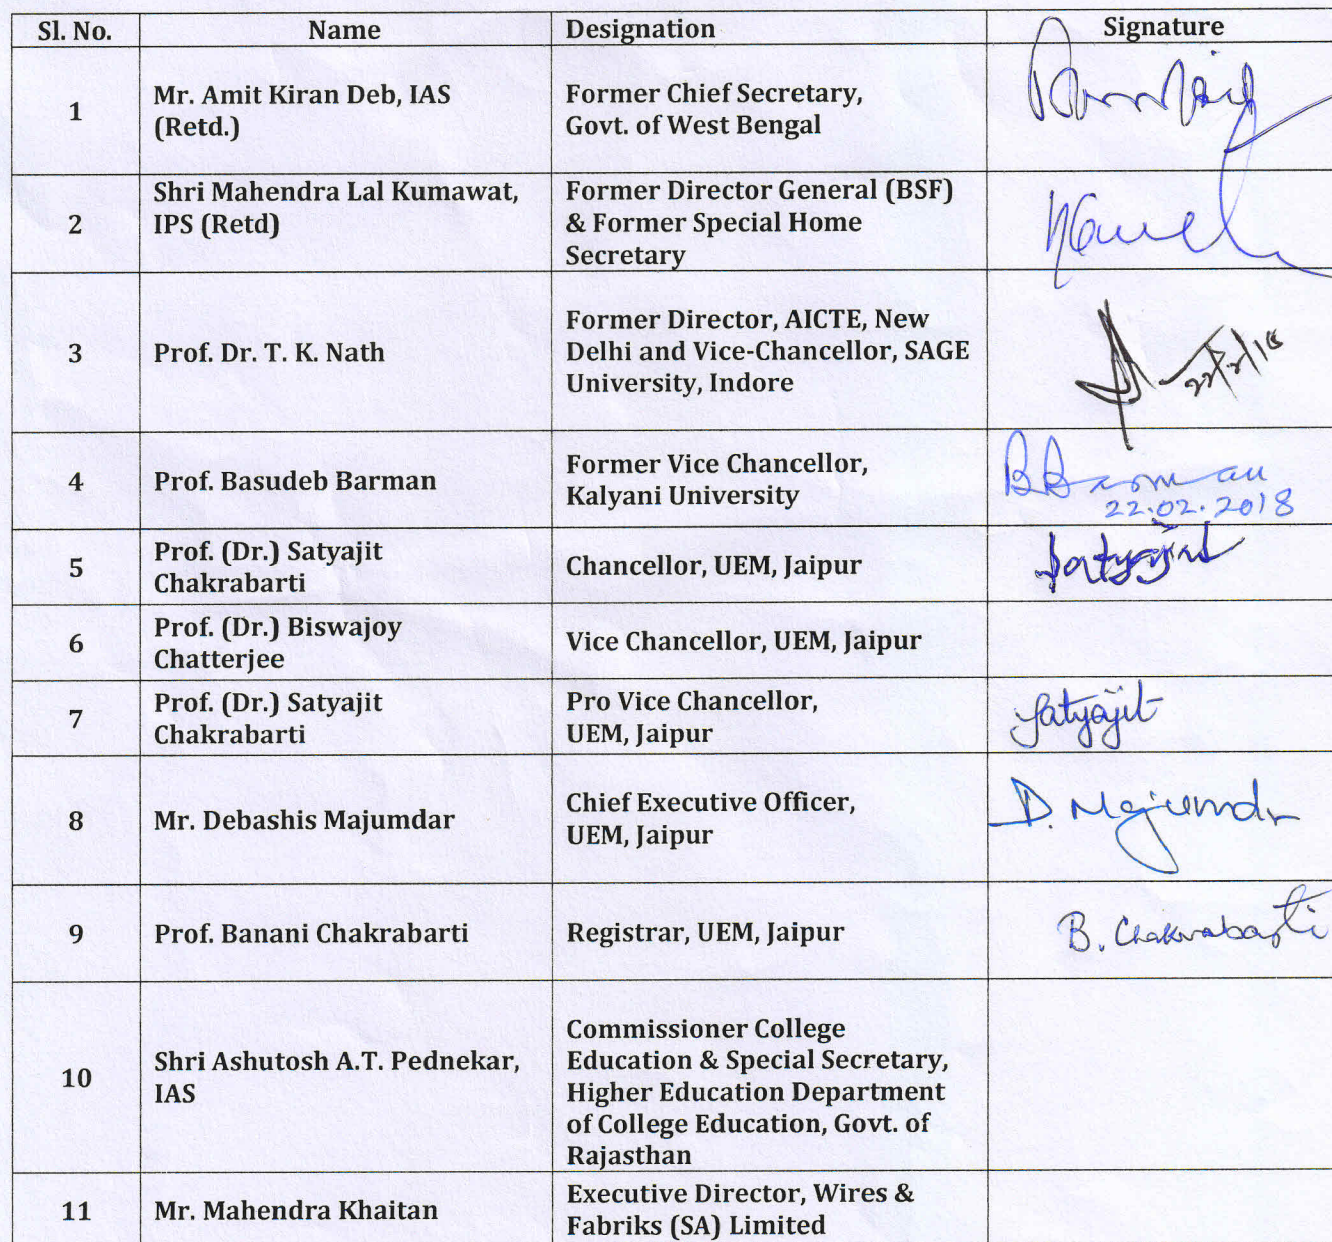 Sl. No. Name Designation Signature
1 Mr. Amit Kiran Deb, IAS Former Chief Secretary,
(Retd.) Govt. of West Bengal
2 Shri Mahendra Lal Kumawat, Former Director General (BSF)
IPS (Retd) & Former Special Home
Secretary
3 Prof. Dr. T. K. Nath Former Director, AICTE, New
Delhi and Vice-Chancellor, SAGE
University, Indore
4 Prof. Basudeb Barman Former Vice Chancellor, BBarman
Kalyani University 22.02.2018
5 Prof. (Dr.) Satyajit Chancellor, UEM, Jaipur Satyajit
Chakrabarti
6 Prof. (Dr.) Biswajoy Vice Chancellor, UEM, Jaipur
Chatterjee
7 Prof. (Dr.) Satyajit Pro Vice Chancellor, Satyajit
Chakrabarti UEM, Jaipur
8 Mr. Debashis Majumdar Chief Executive Officer, D. Majumdr
UEM, Jaipur
9 Prof. Banani Chakrabarti Registrar, UEM, Jaipur B. Chakrabarti
10 Shri Ashutosh A.T. Pednekar, Commissioner College
IAS Education & Special Secretary,
Higher Education Department
of College Education, Govt. of
Rajasthan
11 Mr. Mahendra Khaitan Executive Director, Wires &
Fabriks (SA) Limited